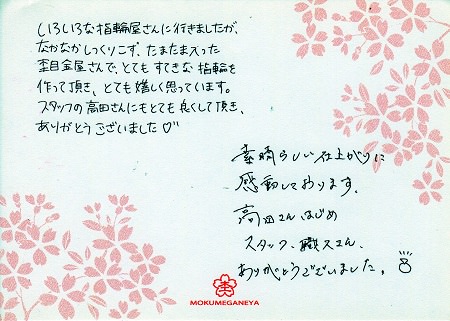 いろいろな指輪屋さんに行きましたが、
なかなかしっくりこず、たまたま入った
杢目金屋さんで、とてもすてきな指輪を
作って頂き、とても嬉しく思っています。
スタッフの高田さんにもとても良くして頂き、
ありがとうございました♡
素晴らしい仕上がりに
感動しております。
高田さんはじめ
スタッフ、職人さん、
ありがとうございました。
杢
MOKUMEGANEYA